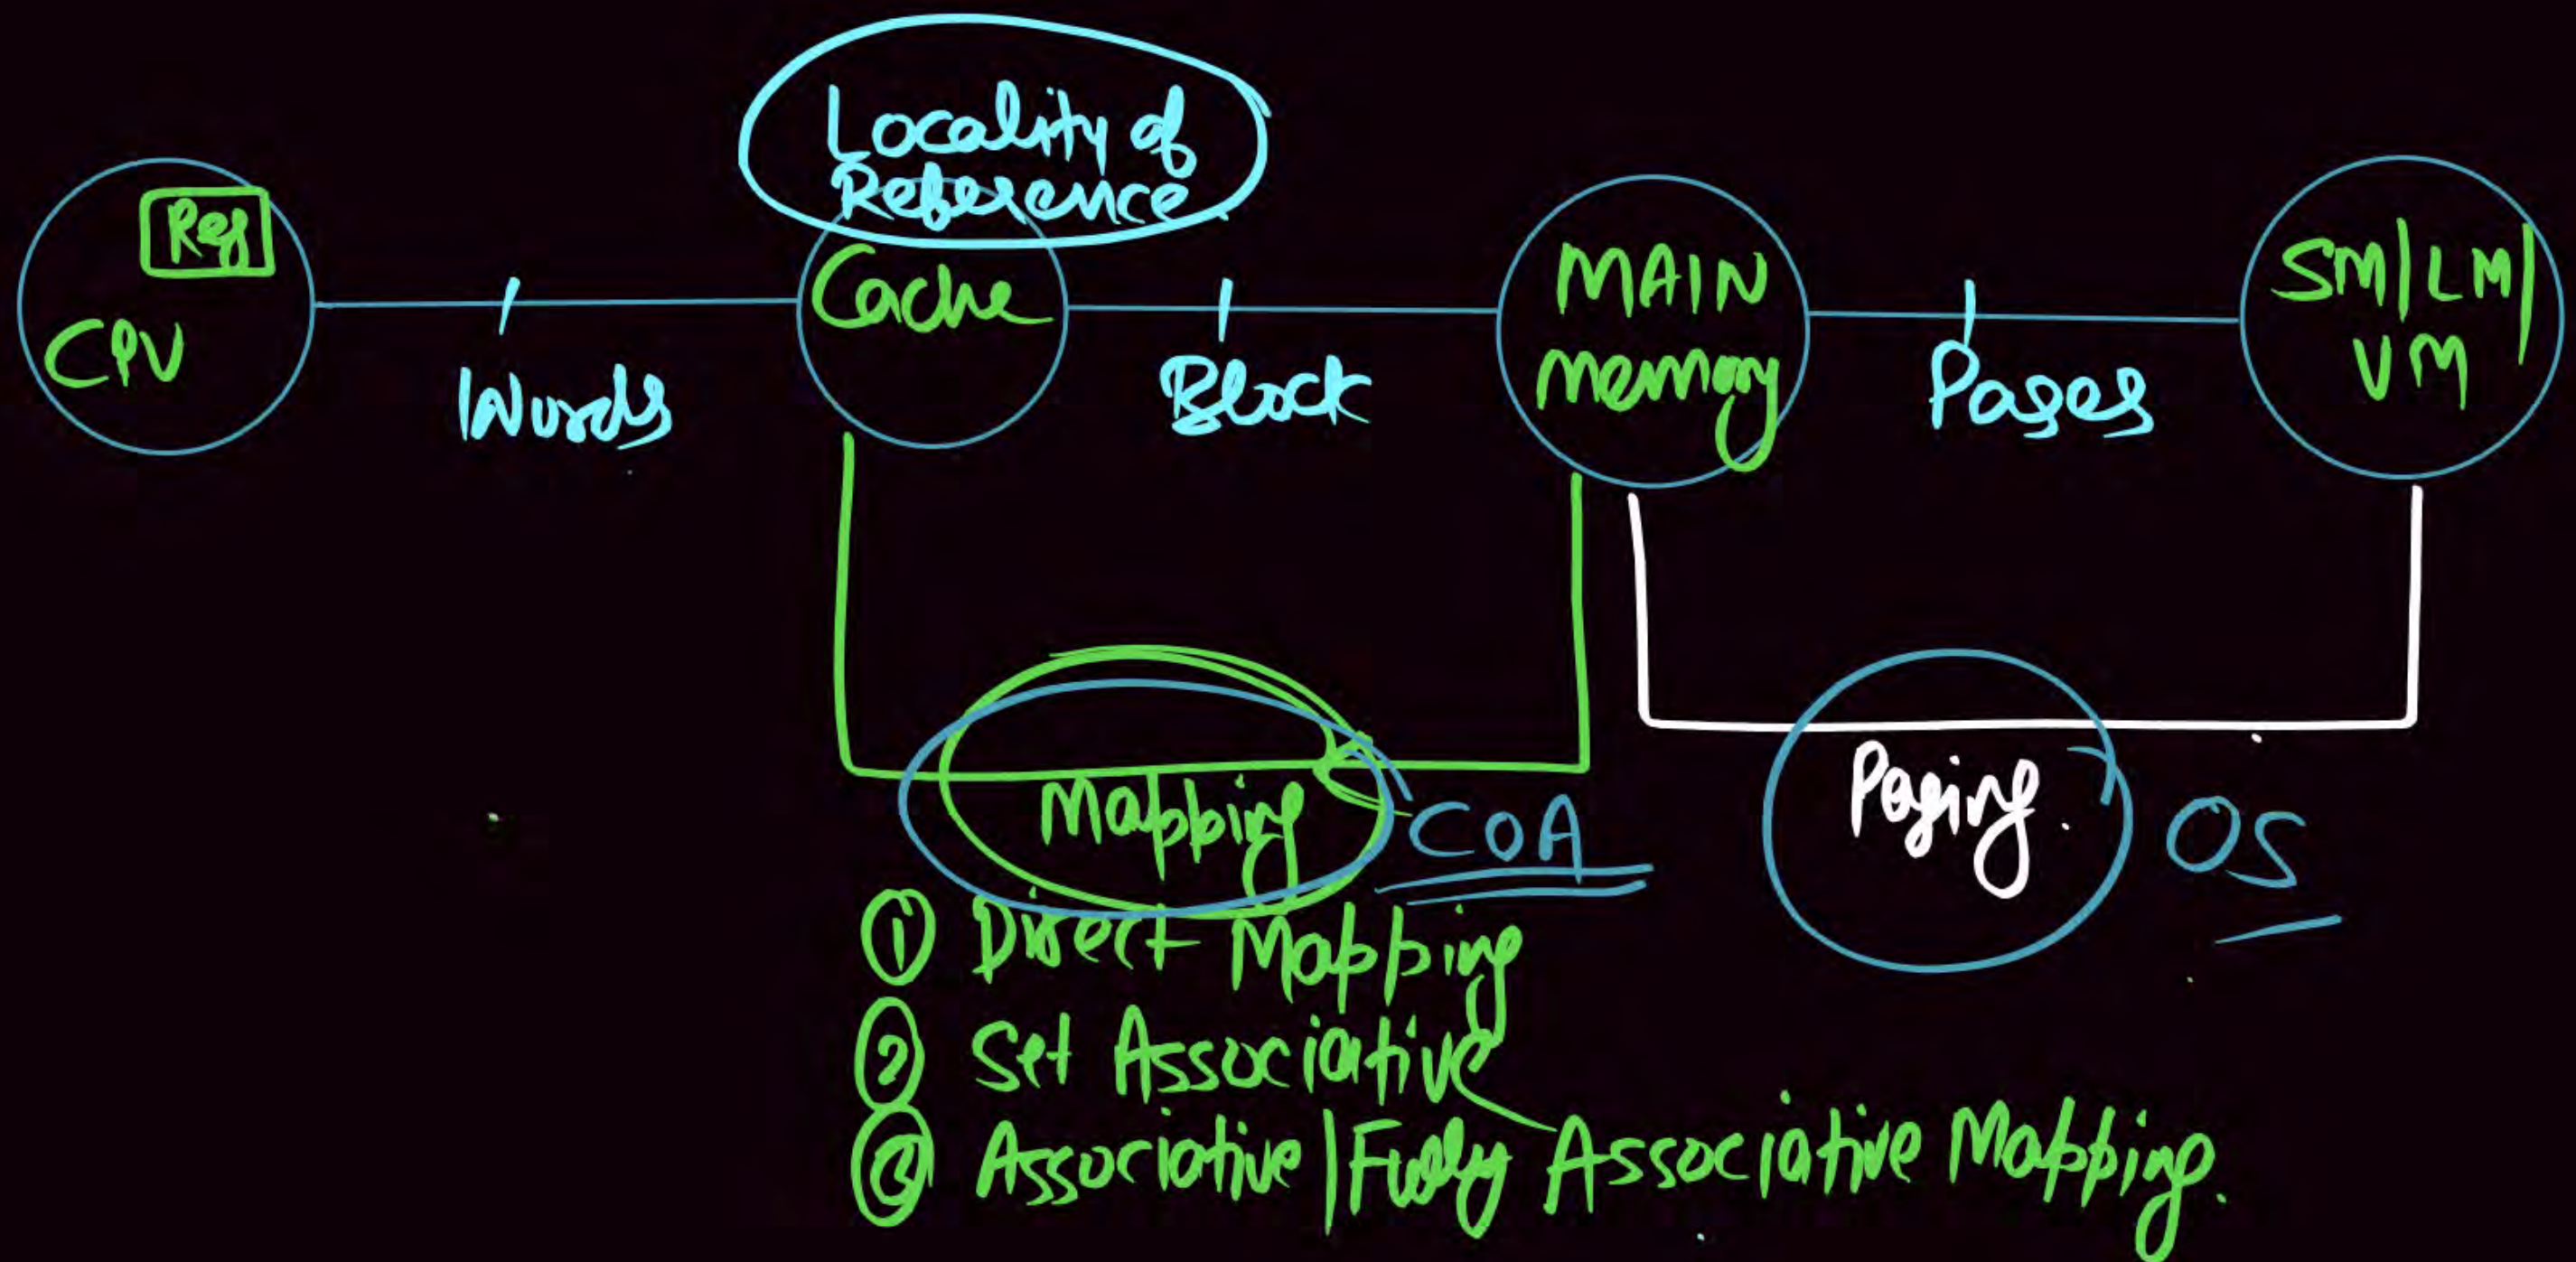 Locality of
Reference
Reg
CPU
Words
Cache
Block
MAIN
memory
Pages
SM|LM|
VM
Mapping
COA
Paging.
OS
① Direct Mapping
② Set Associative
③ Associative|Fully Associative Mapping.